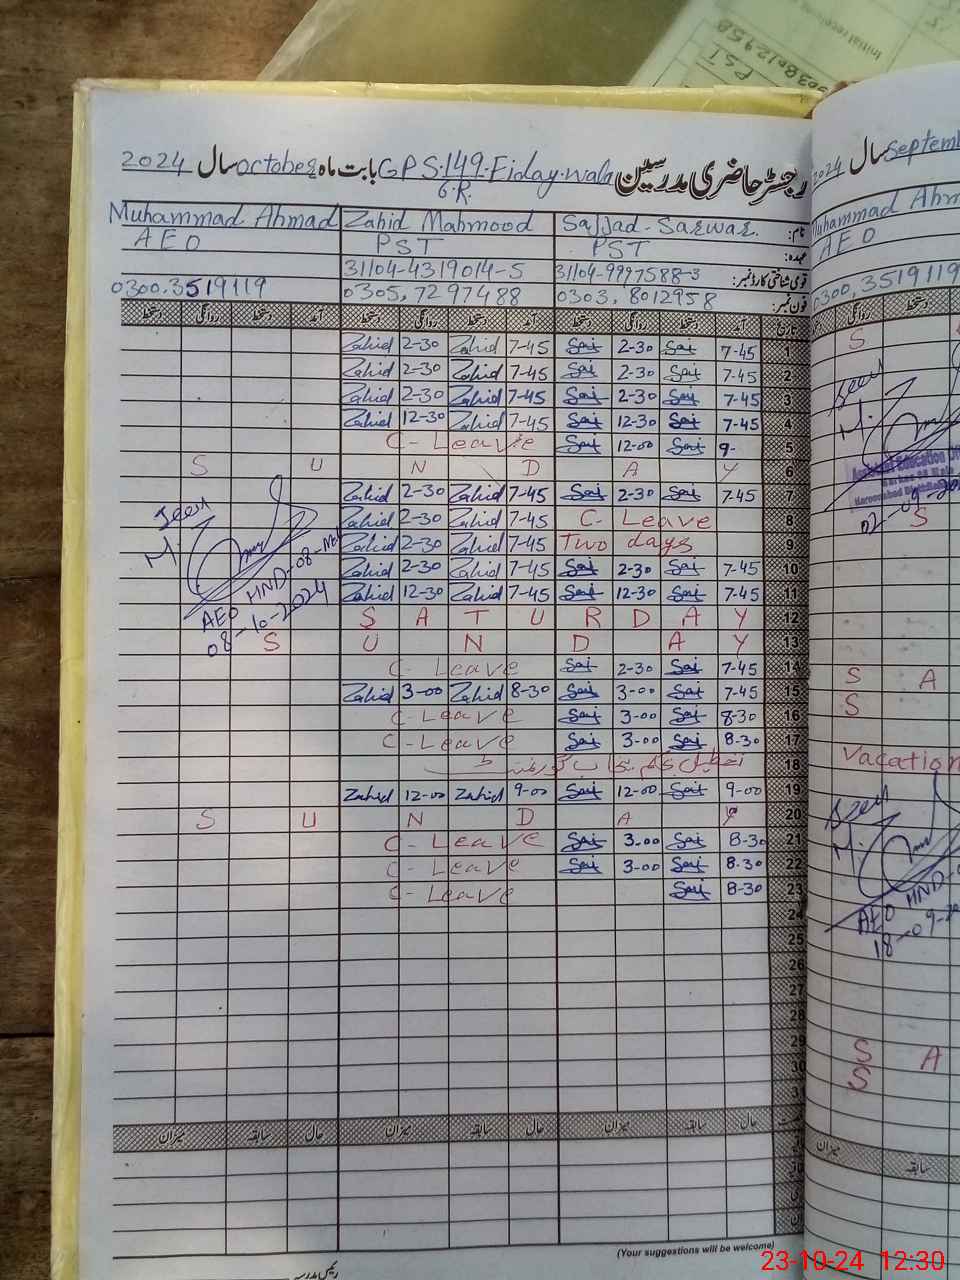 03038012958
PST
Initial receiving
رجسٹر حاضری مدرسین GPS.149.Fiday.wala بابت ماہ october سال 2024
6.R.
نام: Sajjad-Sarwar. Zahid Mahmood Muhammad Ahmad
عہدہ: PST PST AEO
قومی شناختی کارڈ نمبر: 31104-9997588-3 31104-4319014-5
فون نمبر: 0303,8012958 0305,7297488 0300.3519119
تاریخ آمد دستخط روانگی دستخط آمد دستخط روانگی دستخط آمد دستخط روانگی دستخط
1 7-45 Saj 2-30 Saj 7-45 Zahid 2-30 Zahid
2 7-45 Saj 2-30 Saj 7-45 Zahid 2-30 Zahid
3 7-45 Saj 2-30 Saj 7-45 Zahid 2-30 Zahid
4 7-45 Saj 12-30 Saj 7-45 Zahid 12-30 Zahid
5 9- Saj 12-00 Saj C-Leave
6 S U N D A Y
7 7-45 Saj 2-30 Saj 7-45 Zahid 2-30 Zahid
8 C-Leave 7-45 Zahid 2-30 Zahid
9 Two days 7-45 Zahid 2-30 Zahid
10 7-45 Saj 2-30 Saj 7-45 Zahid 2-30 Zahid
11 7-45 Saj 12-30 Saj 7-45 Zahid 12-30 Zahid
12 S A T U R D A Y
13 S U N D A Y
14 7-45 Saj 2-30 Saj C-Leave
15 7-45 Saj 3-00 Saj 8-30 Zahid 3-00 Zahid
16 8-30 Saj 3-00 Saj C-Leave
17 8-30 Saj 3-00 Saj C-Leave
18 تعطیل
19 9-00 Saj 12-00 Saj 9-00 Zahid 12-00 Zahid
20 S U N D A Y
21 8-30 Saj 3.00 Saj C-Leave
22 8-30 Saj 3-00 Saj C-Leave
23 8-30 Saj C-Leave
24
25
26
27
28
29
30
31
Seen
M.
AEO MND-08-
08-10-2024
حال سابقہ میزان حال سابقہ میزان حال سابقہ میزان
(Your suggestions will be welcome)
رئیس مدرسہ
2024 سال September
Muhammad Ahm
AEO
0300,3519119
روانگی دستخط
S
Seen
M.
Assistant Education
02-09-20
S
S A
S
Vacation
Seen
M.
AEO MND-0
18-09-20
S A
S
سابقہ میزان
23-10-24 12:30